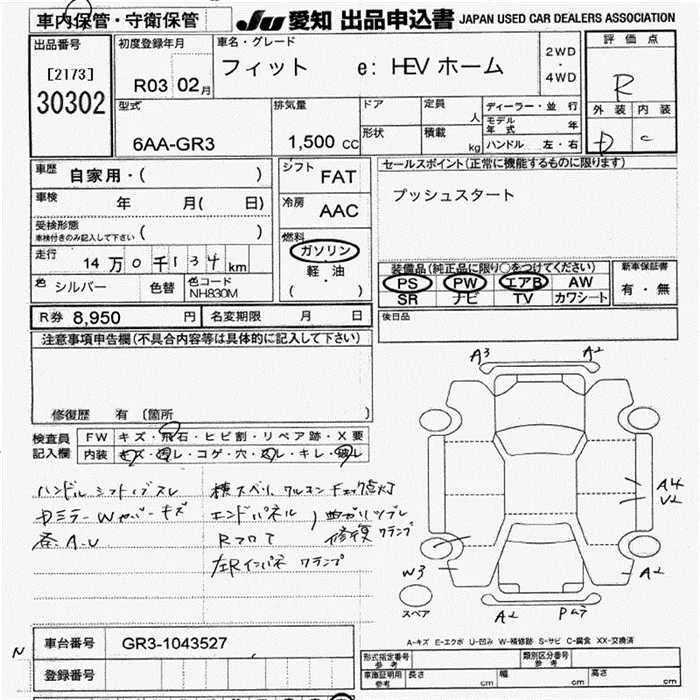 車内保管・守衛保管
JU 愛知 出品申込書 JAPAN USED CAR DEALERS ASSOCIATION
出品番号
[2173]
30302
初度登録年月
R03 02月
車名・グレード
フィット e: HEV ホーム
2WD
・
4WD
評価点
R
外装 内装
D C
型式
6AA-GR3
排気量
1,500 cc
ドア
形状
定員 人
積載 kg
ディーラー・並行
モデル年式 年
ハンドル 左・右
車歴
自家用・( )
車検 年 月( 日)
受検形態
車検付きのみ記入して下さい ( )
走行 14万0千134km
色 シルバー 色替 色コード NH830M
シフト FAT
冷房 AAC
燃料
ガソリン
軽・油
( ・ )
セールスポイント(正常に機能するものに限ります)
プッシュスタート
装備品(純正品に限り○をつけてください)
PS PW エアB AW
SR ナビ TV カワシート
新車保証書
有・無
後日品
R券 8,950 円 名変期限 月 日
注意事項申告欄(不具合内容等は具体的に記入して下さい)
修復歴 有 〔箇所 〕
検査員記入欄
FW キズ・飛石・ヒビ割・リペア跡・X要
内装 キズ・汚レ・コゲ・穴・スレ・キレ・破レ
ハンドル シフトノブスレ
Wカバーキズ
A・U
横スベリ チェック点灯
エンドパネル
修復 クランプ
クランプ
A3 A2
A4
V2
W3 A2
スペア
A2
A-キズ E-エクボ U-凹み W-補修跡 S-サビ C-腐食 XX-交換済
N
車台番号 GR3-1043527
登録番号
形式指定番号 参考
類別区分番号 参考
車庫証明用 参考 長さ cm 幅 cm 高さ cm